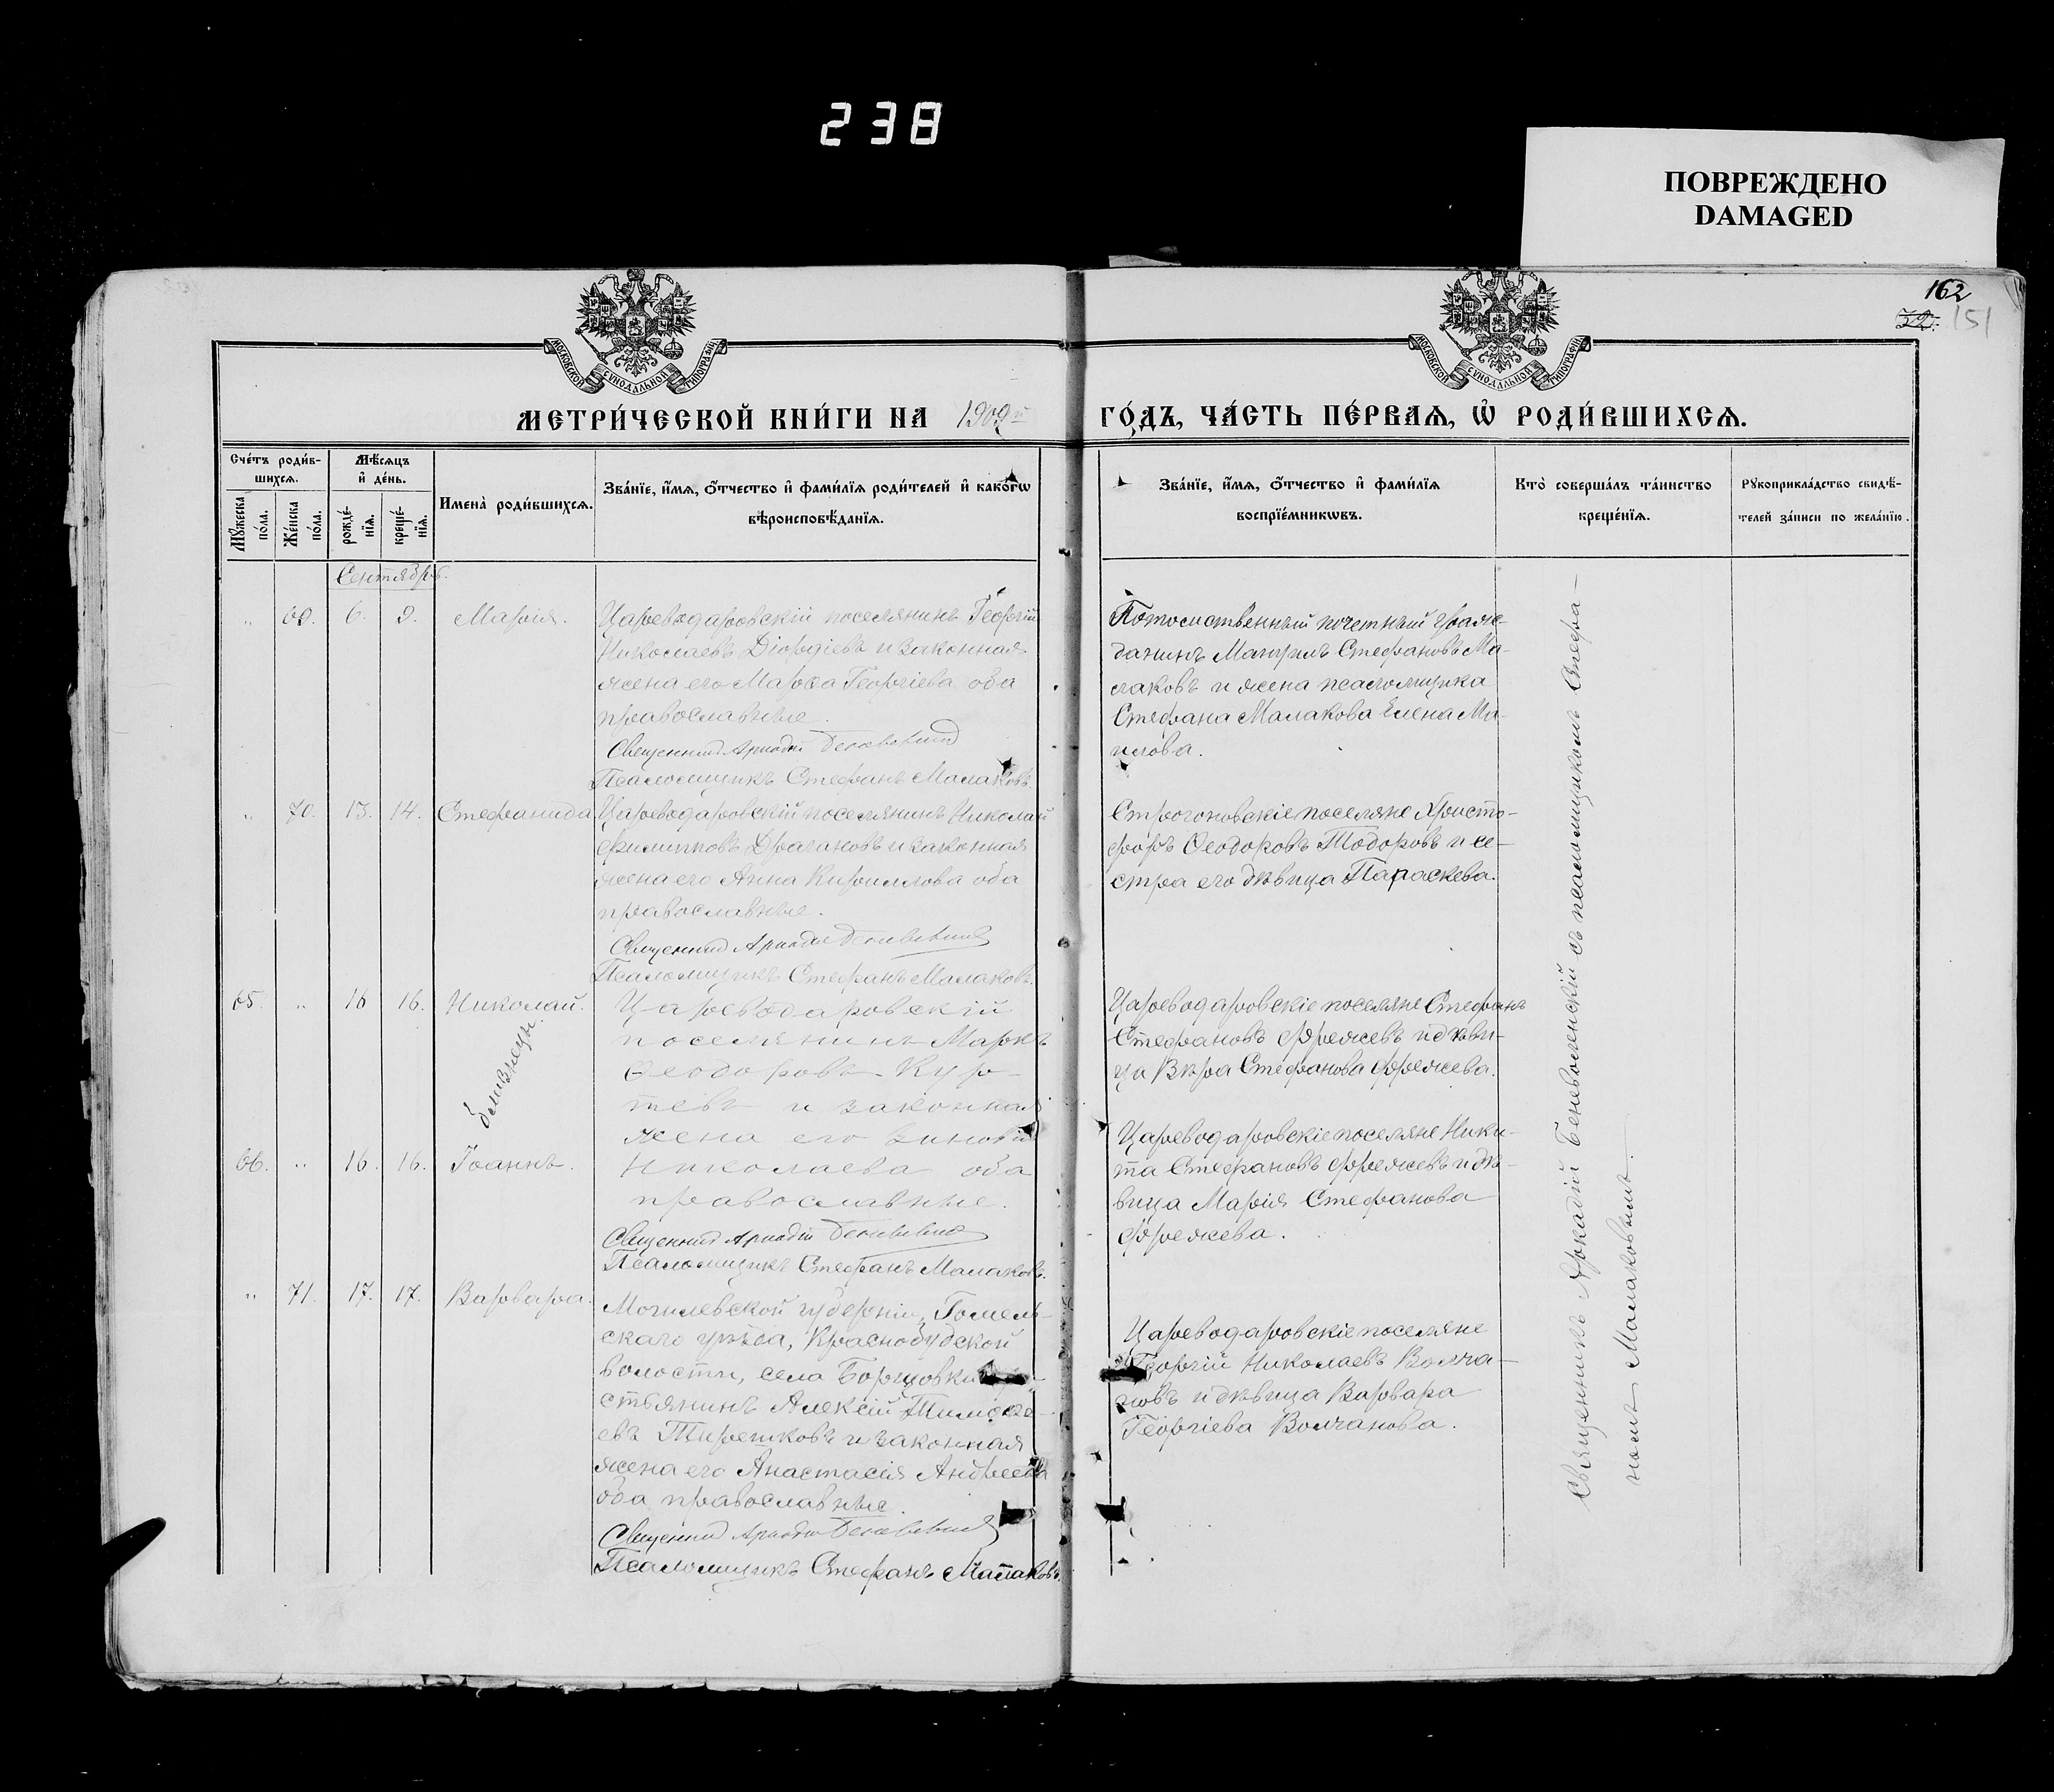 238
ПОВРЕЖДЕНО
DAMAGED
162
32. 151
МОСКОВСКОЙ СѴНОДАЛЬНОЙ ТИПОГРАФІИ
МОСКОВСКОЙ СѴНОДАЛЬНОЙ ТИПОГРАФІИ
МЕТРИ́ЧЕСКОЙ КНИ́ГИ НА 1909й ГО́ДЪ, ЧА́СТЬ ПЕ́РВАѦ, Ѡ҆ РОДИ́ВШИХСѦ.
Сче́тъ роди́в-
шихсѧ.
Мꙋ́жеска по́ла.
Же́нска по́ла.
Мѣ́сѧцъ
и҆ де́нь.
рожде́-
нїѧ.
креще́-
нїѧ.
Имена̀ роди́вшихсѧ.
Зва́нїе, и҆́мѧ, ѻ҆́тчество и҆ фами́лїѧ роди́телей и҆ како́гѡ
вѣроисповѣ́данїѧ.
Зва́нїе, и҆́мѧ, ѻ҆́тчество и҆ фами́лїѧ
воспрїе́мникѡвъ.
Кто̀ соверша́лъ та́инство
креще́нїѧ.
Рꙋкоприкла́дство свидѣ́-
телей за́писи по жела́нїю.
Сентябрь.
„ 69. 6. 9. Марія.
Цареводаровскій поселянинъ Георгій
Николаевъ Діордіевъ и законная
жена его Марѳа Георгіева оба
православные.
Священникъ Аркадій Беневоленскій
Псаломщикъ Стефанъ Малаковъ.
Потомственный почетный граж-
данинъ Стефановъ Ма-
лаковъ и жена псаломщика
Стефана Малакова Елена Ма-
. 
„ 70. 13. 14. Стефанида.
Цареводаровскій поселянинъ Николай
Филипповъ Драгановъ и законная
жена его Анна Кириллова оба
православные.
Священникъ Аркадій Беневоленскій
Псаломщикъ Стефанъ Малаковъ.
Строгоновскіе поселяне Христо-
форъ Ѳеодоровъ Тодоровъ и се-
стра его дѣвица Параскева.
65. „ 16 16. Николай.
близнецы.
66. „ 16. 16. Іоаннъ.
Цареводаровскій
поселянинъ Маркъ
Ѳеодоровъ Кур-
тевъ и законная
жена его Зиновія
Николаева оба
православные.
Священникъ Аркадій Беневоленскій
Псаломщикъ Стефанъ Малаковъ.
Цареводаровскіе поселяне Стефанъ
Стефановъ Фрежевъ и дѣви-
ца Вѣра Стефанова Фрежева.
Цареводаровскіе поселяне Ники-
та Стефановъ Фрежевъ и дѣ-
вица Марія Стефанова
Фрежева.
„ 71. 17. 17. Варвара.
Могилевской губерніи, Гомель-
скаго уѣзда, Краснобудской
волости, села Борщовки кре-
стьянинъ Алексій Тимоѳе-
евъ Тирешковъ и законная
жена его Анастасія Андреева
оба православные.
Священникъ Аркадій Беневоленскій
Псаломщикъ Стефанъ Малаковъ.
Цареводаровскіе поселяне
Георгій Николаевъ Волча-
новъ и дѣвица Варвара
Георгіева Волчанова.
Священникъ Аркадій Беневоленскій съ псаломщикомъ Стефа-
номъ Малаковымъ.